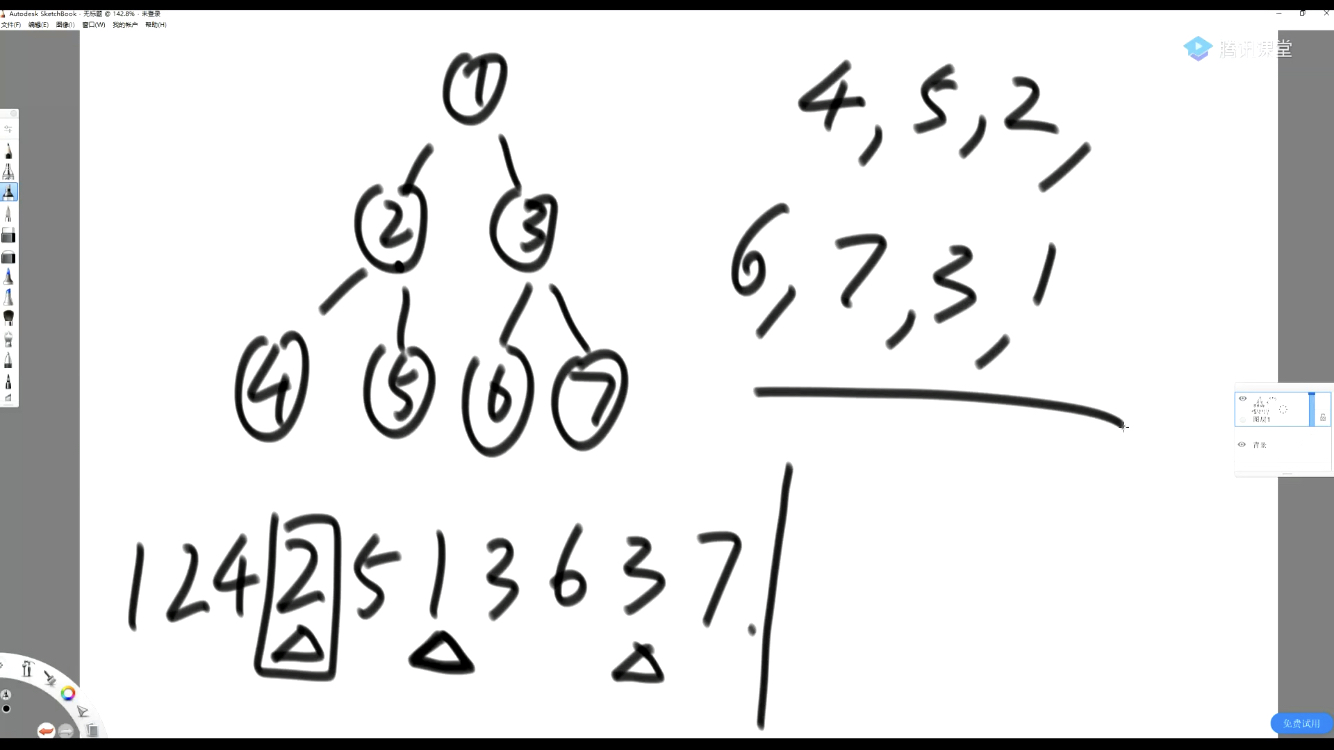 Autodesk SketchBook - 无标题 @ 142.8% - 未登录
文件(F) 编辑(E) 图像(I) 窗口(W) 我的帐户 帮助(H)
腾讯课堂
1
2 3
4 5 6 7
4, 5, 2,
6, 7, 3, 1
1 2 4 2 5 1 3 6 3 7.
背景
免费试用